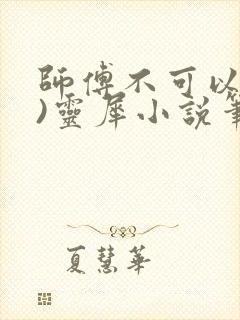 師傅不可以
)靈犀小說筆
夏慧華